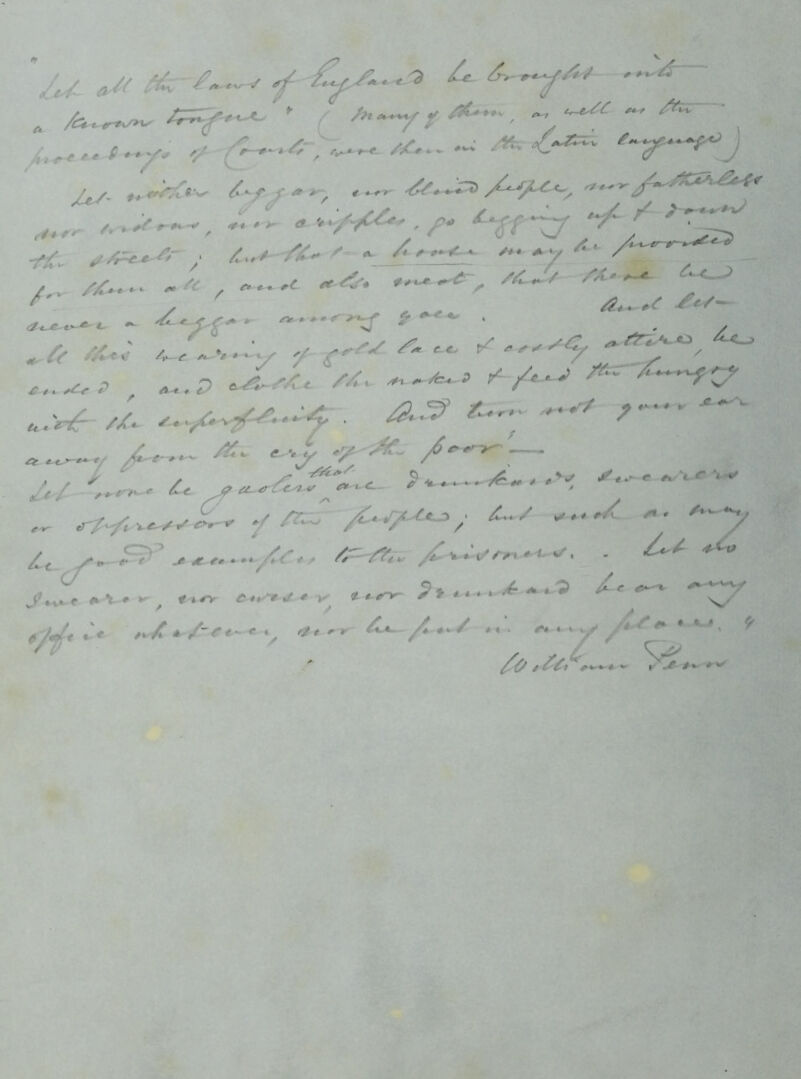 "Let all the laws of England be brought into
a known tongue" (Many of them, as well as the
proceedings of Courts, were then in the Latin language)
Let neither beggar, nor blind people, nor fatherless
nor widows, nor cripples, go begging up & down
the streets; but that a house may be provided
for them all, and also meat, that there be
never a beggar among you. And let
all this wearing of gold lace & costly attire, be
ended, and clothe the naked & feed the hungry
with the superfluity. And turn not your ear
away from the cry of the poor" —
Let none be gaolers that are drunkards, swearers
or oppressors of the people; but such as may
be good examples to the prisoners. . Let no
swearer, nor curser, nor drunkard bear any
office whatever, nor be put in any place."
William Penn